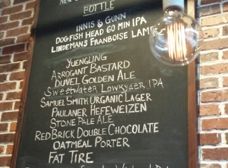 BOTTLE
INNIS & GUNN
DOGFISH HEAD 60 MIN IPA
LINDEMANS FRAMBOISE LAMBIC
YUENGLING
ARROGANT BASTARD
DUVEL GOLDEN ALE
SWEETWATER LOWRYDER IPA
SAMUEL SMITH ORGANIC LAGER
PAULANER HEFEWEIZEN
STONE PALE ALE
RED BRICK DOUBLE CHOCOLATE
OATMEAL PORTER
FAT TIRE